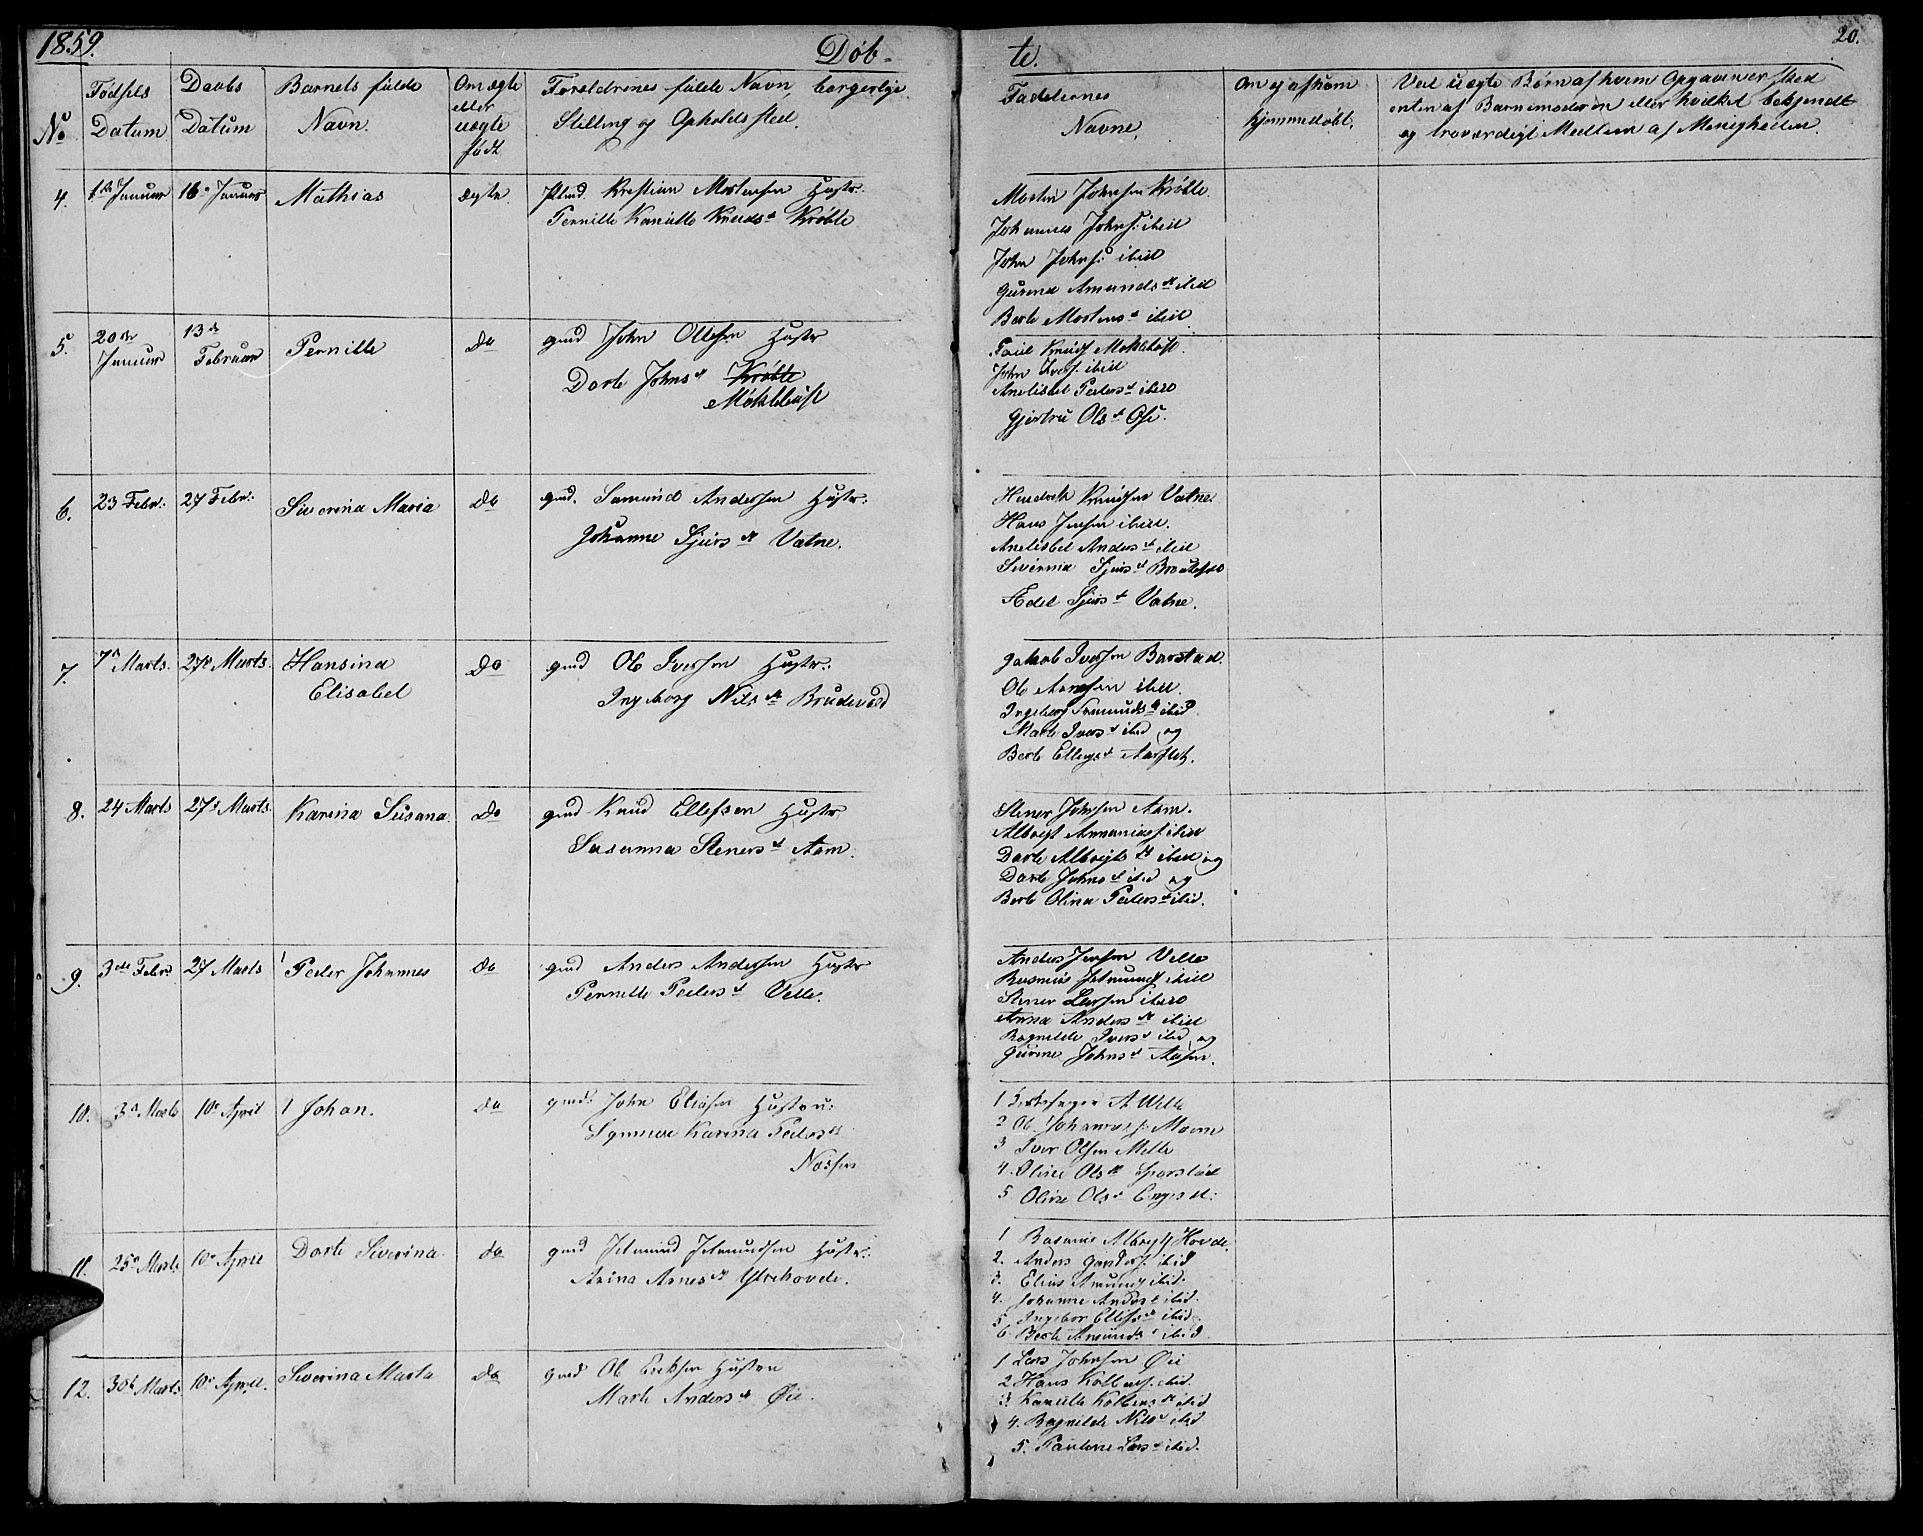 1859.
Døb-
te.
20.
No
Fødsels Datum
Daabs Datum
Barnets fulde Navn.
Om ægte eller uægte født
Forældrenes fulde Navn, borgerlige Stilling og Opholdssted.
Faddernes Navne.
Om og af hvem hjemmedøbt.
Ved uægte Børn af hvem Opgaven er skeed
enten af Barnemoderen eller hvilket bekjendt
og troværdigt Medlem af Menigheden.
4. 1ste Januar 16de Januar Mathias ægte Kristian Mortensen Hustr:
Pernille Kanutte Knudsd Krøvle
Morten Johnsen Krøvle
Johannes Johns: ibid
John Johns: ibid
Gurina Amundsd ibid
Berte Mortensd ibid
5. 20de Januar 13de Februar Pernille do gmd John Ollesen Hustr
Dorte Johnsd Krøvle
Mokkelbust
Knuds Mokkelbust.
John Ivers. ibid
Anelisbet Pedersd ibid
Gjertru Olsd Ose.
6. 23 Febr: 27 Febr: Siverina Maria do gmd. Samund Andersen Hustr:
Johanne Sjursd Vatne.
Hendrik Knudsen Vatne
Hans Jensen ibid.
Anelisbet Andersd ibid
Siverina Sjursd
Adel Sjursd Vatne.
7. 7de Marts. 27de Marts. Hansina do gmd Ole Iversen Hustr:
Elisabet Ingeborg Nilsd Brudevold
Jakob Iversen Barstad.
Ole Arnesen ibid.
Ingeborg Samundsd ibid
Marte Iversd ibid og
Berte Ellingsd Aarflot.
8. 24 Marts 27de Marts. Karina Susana do gmd Knud Ellefsen Hustr
Susanna Stenersd Aam.
Stener Johnsen Aam.
Albregt Ananias ibid
Dorte Albregtsd ibid og
Dorte Johnsd ibid og
Berte Olina Pedersd ibid.
9. 3die Febr 27 Marts Peder Johannes do gmd Anders Andersen Hustr
Pernille Pedersd Velle.
Anders Jensen Velle
Rasmus Jetmunds ibid
Stener Larsen ibid
Anna Andersd ibid
Ragnilde Iversd ibid og
Gurine Johnsd Aasen.
10. 3de Marts 10de April Johan. do gmd: John Eliasen Hustru:
Synneve Karina Pedersd
Næssen
1 A Welle
2 Ole Johannes: Moene
3 Iver Olsen Melle
4. Oline Olsd
5 Oline Olsd Engeset:
11. 25de Marts 10de April Dorte Siverina do gmd Jetmund Jetmundsen Hustr:
Anna Arnesd Ytrehovde.
1 Rasmus Albregts Hovde.
2. Anders ibid
3. Elias Amunds ibid.
4. Johanne Andersd ibid.
5 Ingebor Ellefsd ibid.
6 Berte Amundsd ibid.
12. 30te Marts 10de April. Siverina Marta do gmd Ole Eriksen Hustru
Marte Andersd Øie.
1 Lars Johnsen Øie
2 Hans Kolbens. ibid.
3 Kanutte Kolbensd ibid
4. Ragnilde Nilsd ibid
5. Pauline Larsd ibid.